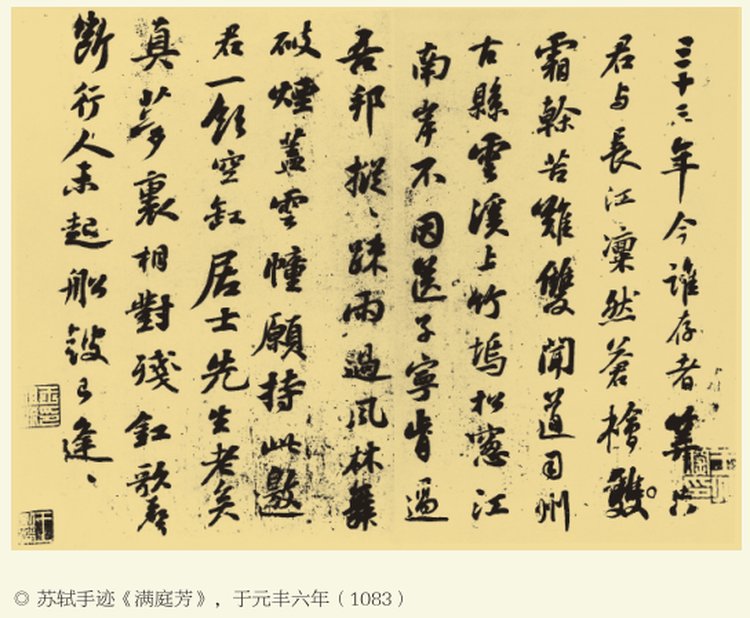 三十三年今誰存者筭只
君与長江凜然蒼檜雙
霜幹苦難雙聞道司州
古縣雲溪上竹塢松窓江
南岸不因送子寧肯過
吾邦摐、疎雨過風林舞
破煙蓋雲幢願持此邀
君一飲空缸居士先生老矣
真夢裏相對殘釭歌聲
斷行人未起船鼓已逢、
◎ 苏轼手迹《满庭芳》，于元丰六年（1083）